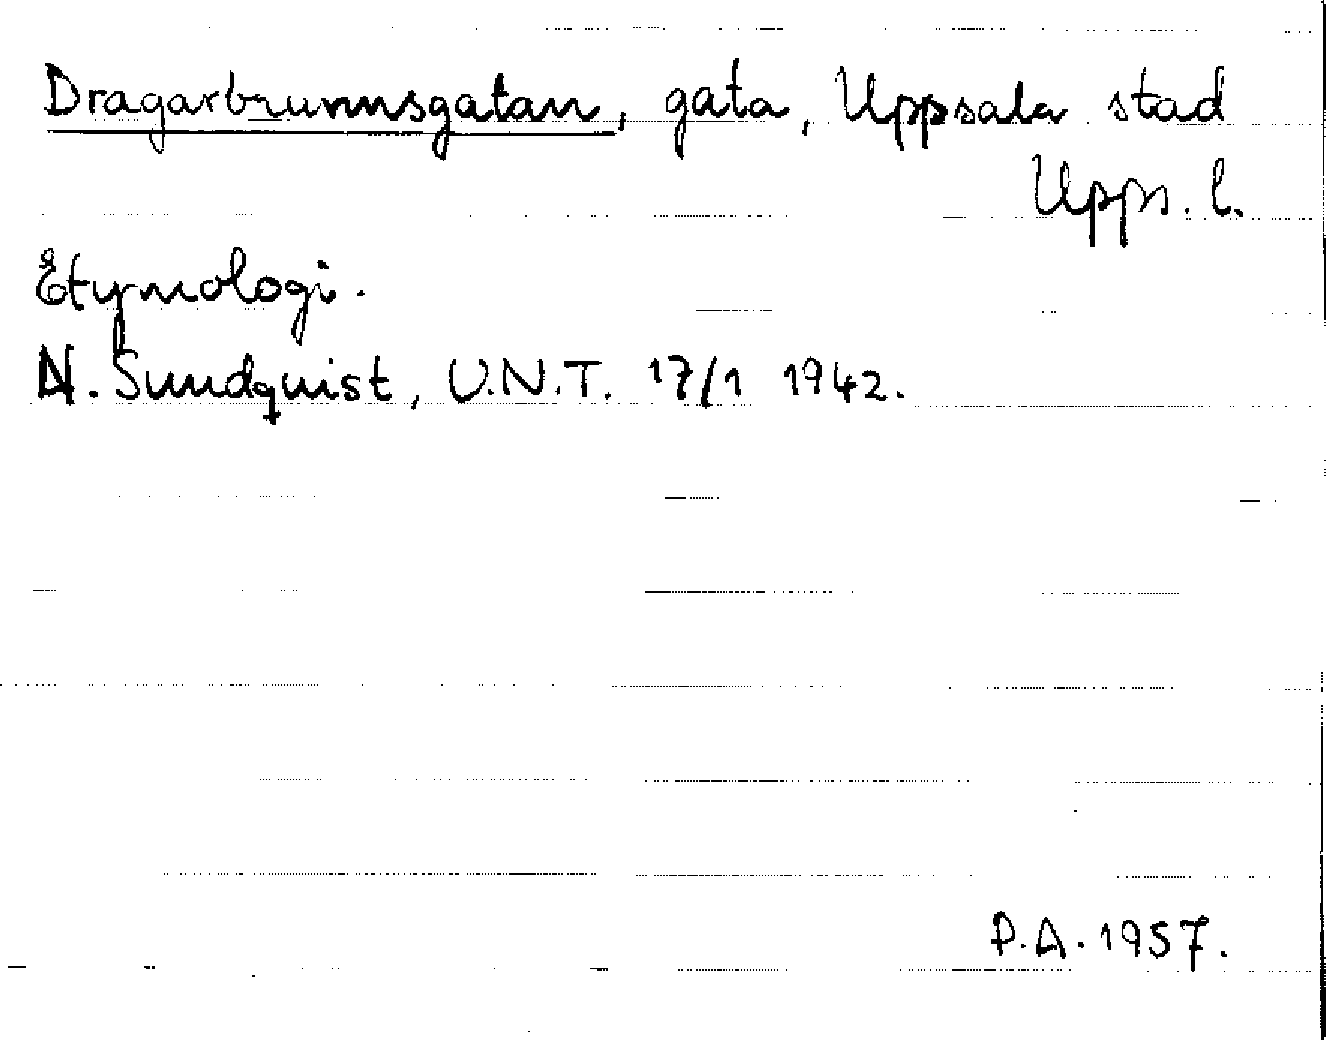 Dragarbrunnsgatan, gata, Uppsala stad
Upps. l.
Etymologi.
N. Sundquist, U.N.T. 17/1 1942.
P.A. 1957.